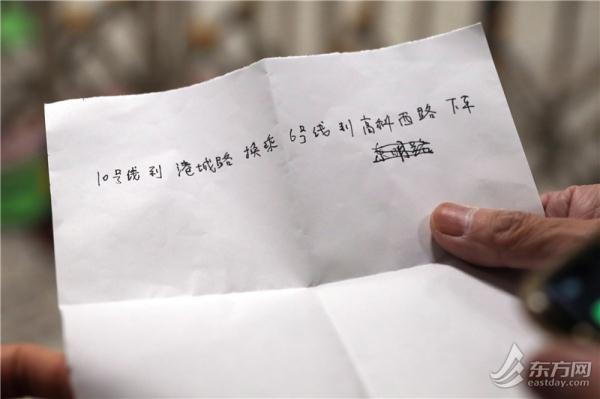 10号线到 港城路 换乘 6号线到高科西路 下车
东明路
东方网
eastday.com